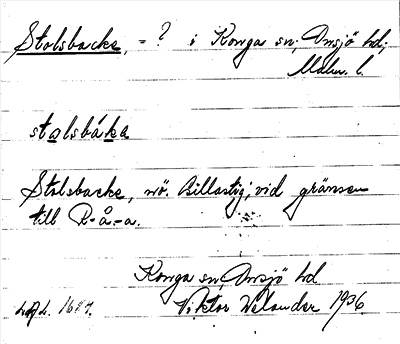 Stolsbacke, = ? i Konga sn; Onsjö hd;
Malm. l.
stolsbáka
Stolsbacke, nö. Billastig, vid gränsen
till R-å-a.
Konga sn, Onsjö hd
Viktor Welander 1936.